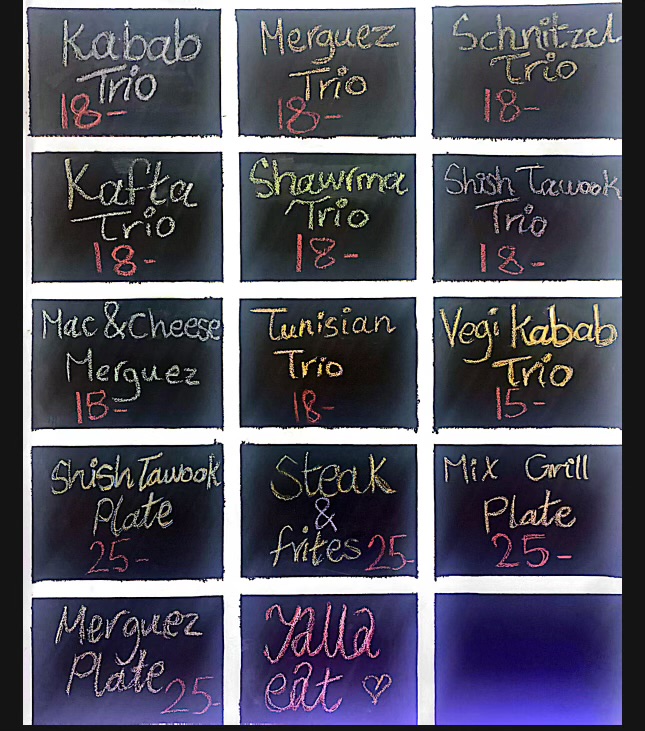 Kabab
Trio
18-
Merguez
Trio
18-
Schnitzel
Trio
18-
Kafta
Trio
18-
Shawrma
Trio
18-
Shish Tawook
Trio
18-
Mac & Cheese
Merguez
15-
Tunisian
Trio
18-
Vegi Kabab
Trio
15-
Shish Tawook
Plate
25-
Steak
&
frites 25-
Mix Grill
Plate
25-
Merguez
Plate
25-
Yalla
eat ♡